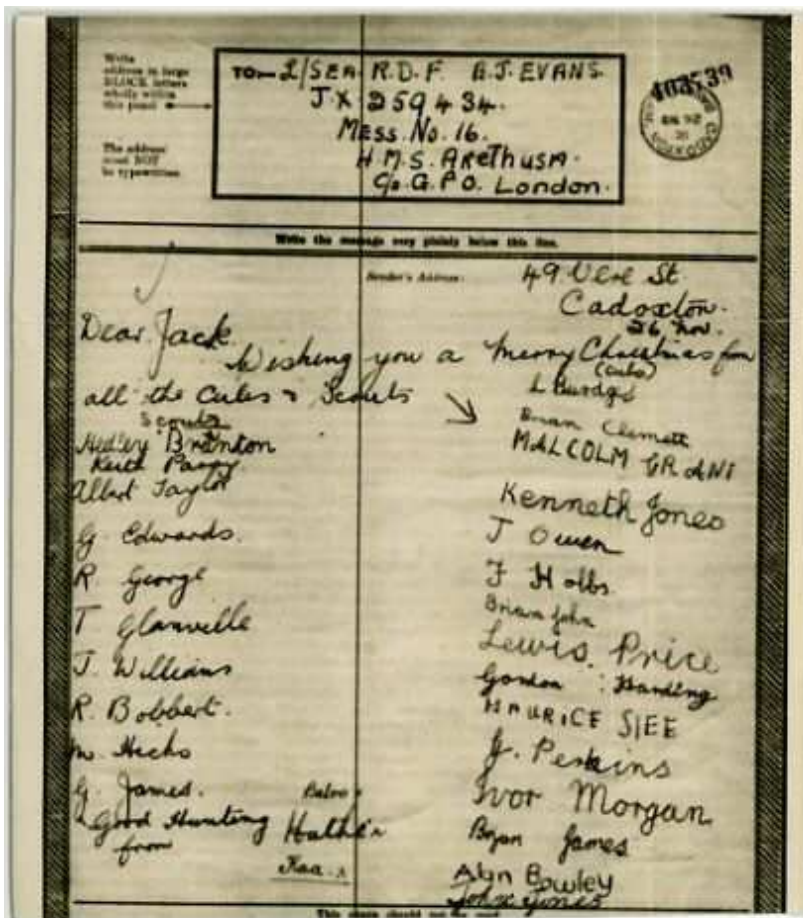 Write
address in large
BLOCK letters
wholly within
this panel
The address
must NOT
be typewritten.
TO:- L/SEA R.D.F. B.J. EVANS.
JX 259434.
MESS. No. 16.
H.M.S. ARETHUSA.
C/o G.P.O. London.
403539
CADOXTON
Write the message very plainly below this line.
Sender's Address:
49 Vere St
Cadoxton.
26 Nov.
Dear Jack.
Wishing you a Merry Christmas from
all the Cubs & Scouts
Scouts
Hedley Brenton
Keith Parry
Albert Taylor
G. Edwards.
R. George
T Glanville
J. Williams
R. Bobbert.
M. Hicks
G. James.
Good Hunting
from
Baloo
Hathi
Kaa.
(Cubs)
L Burdge
Brian Clemett
MALCOLM GRANT
Kenneth Jones
J Owen
F Hobbs.
Brian John
Lewis. Price
Gordon Harding
MAURICE SLEE
J. Perkins
Ivor Morgan
Bryan James
Alyn Bowley
John Jones